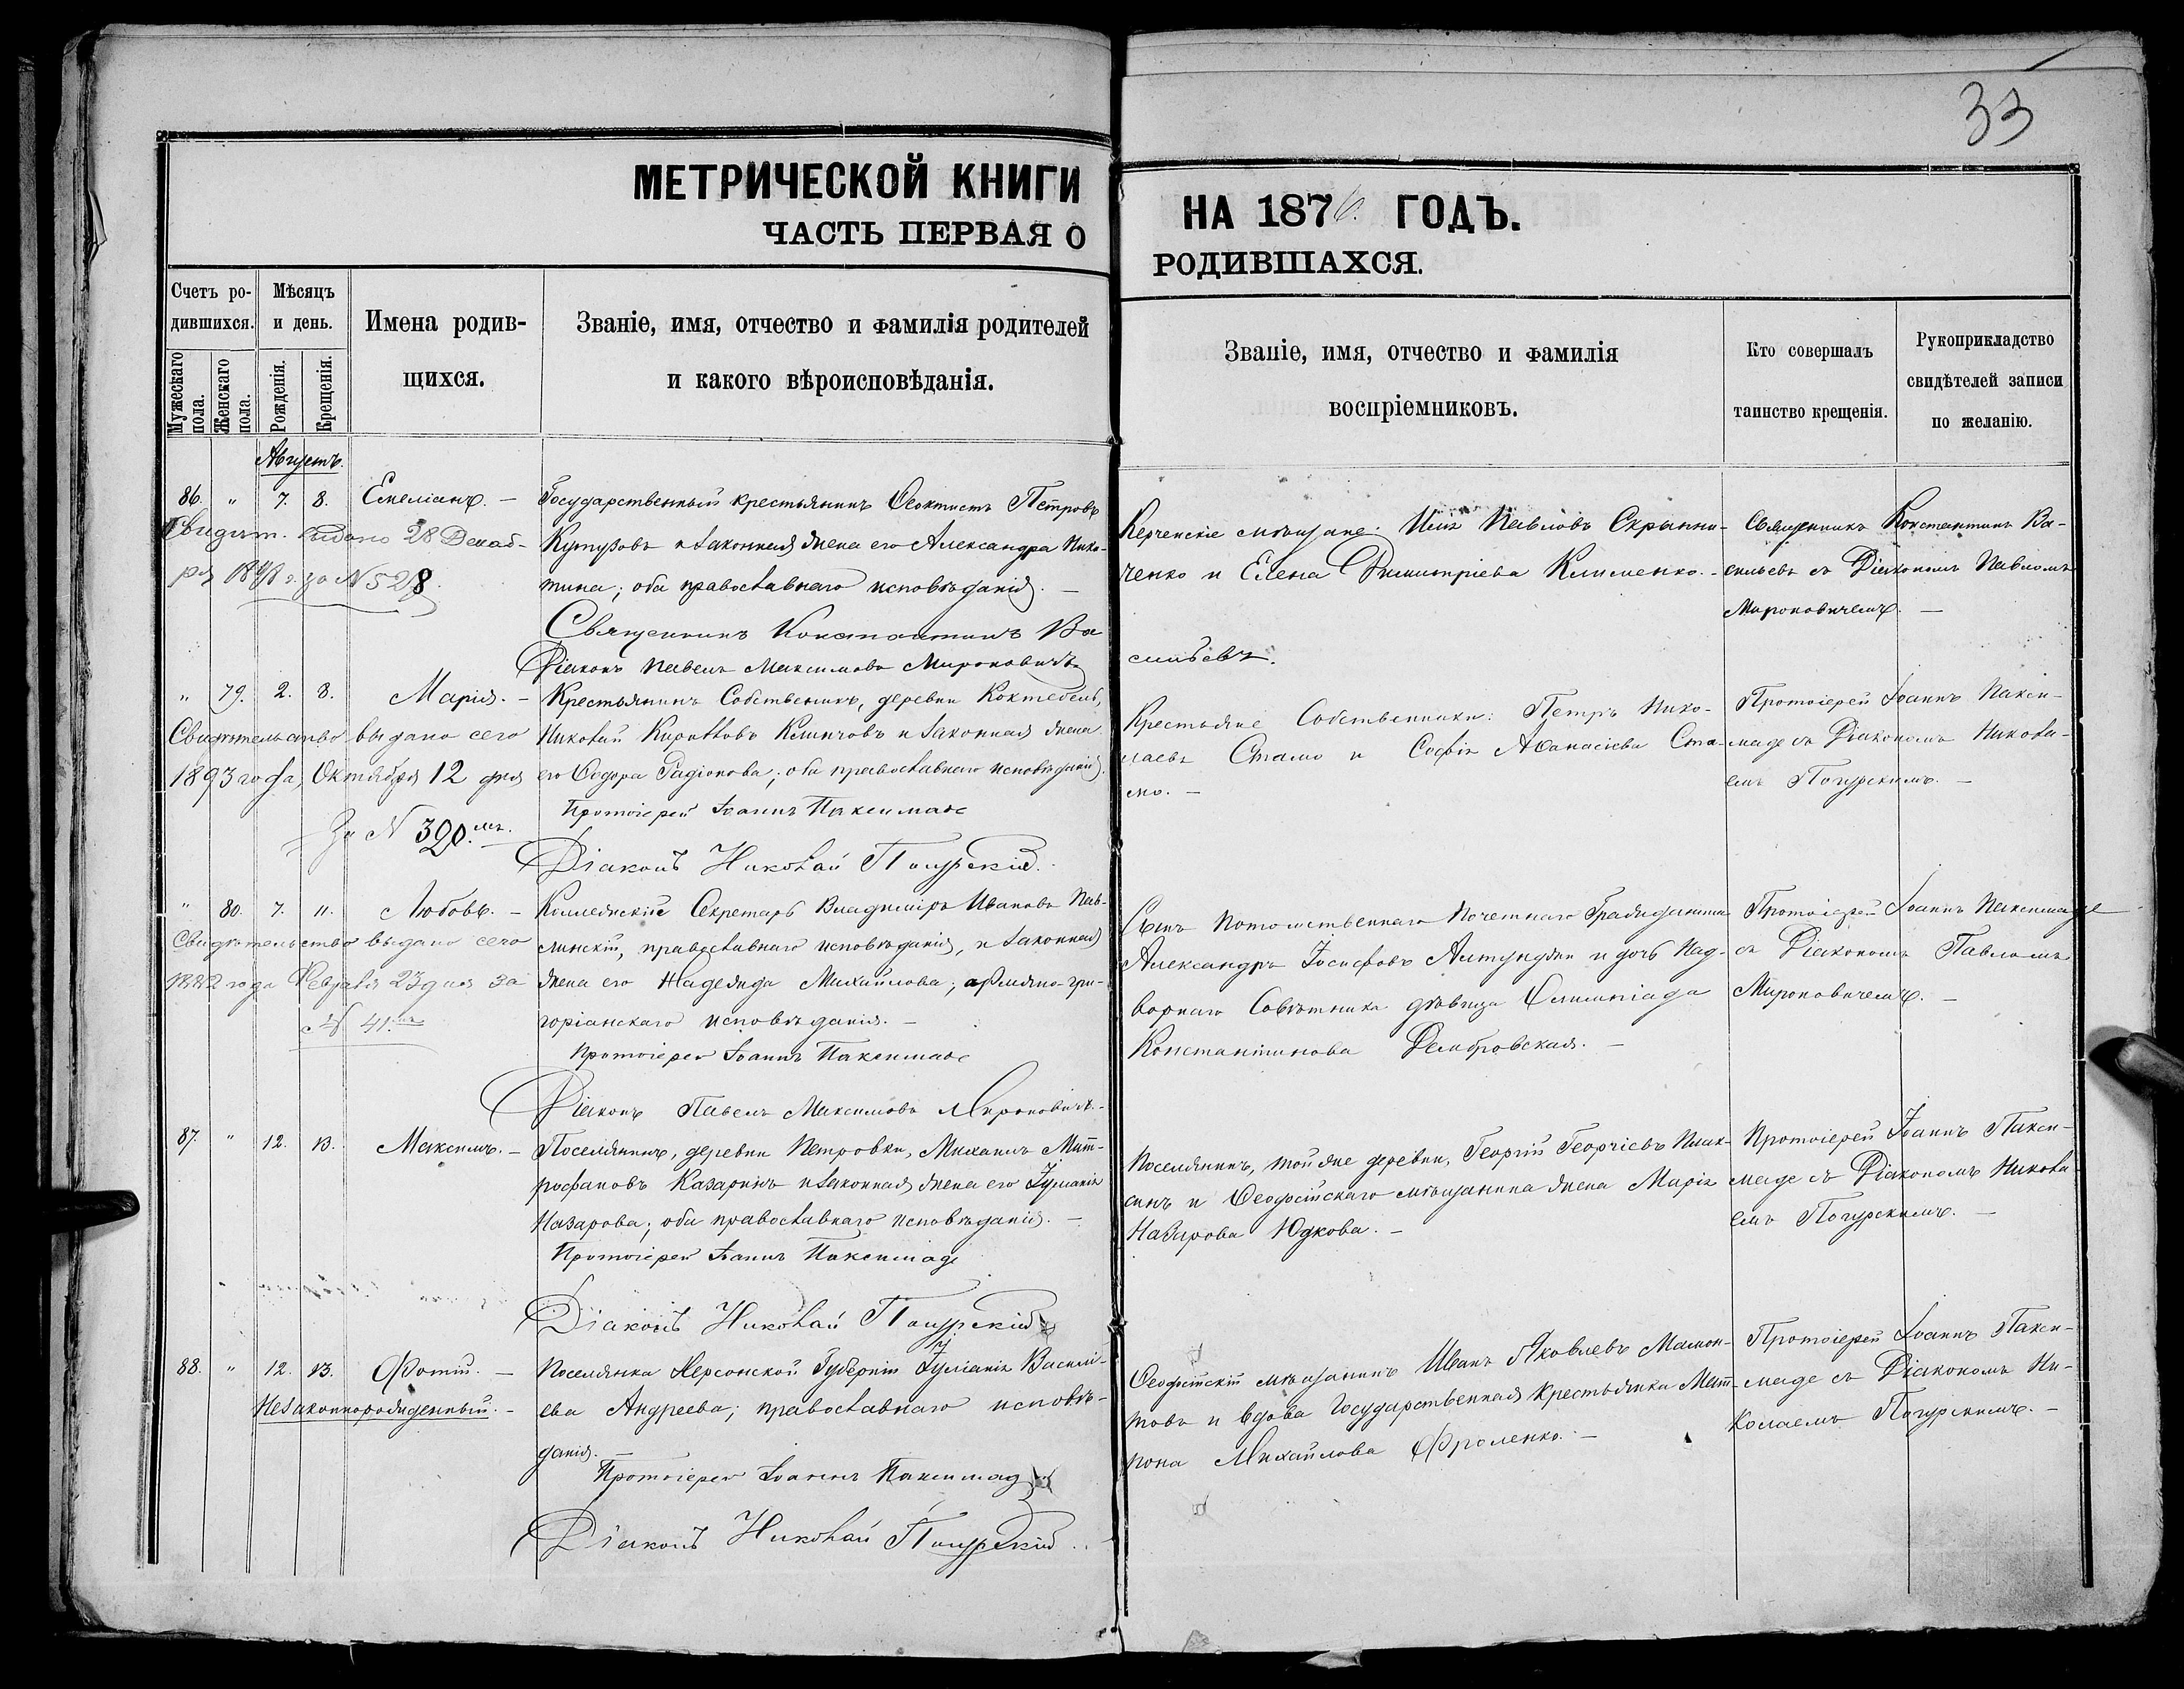 33
МЕТРИЧЕСКОЙ КНИГИ
НА 1876. ГОДЪ.
ЧАСТЬ ПЕРВАЯ О
РОДИВШАХСЯ.
Счетъ ро-
дившихся.
Мужескаго пола.
Женскаго пола.
Мѣсяцъ
и день.
Рожденія.
Крещенія.
Имена родив-
щихся.
Званіе, имя, отчество и фамилія родителей
и какого вѣроисповѣданія.
Званіе, имя, отчество и фамилія
воспріемниковъ.
Кто совершалъ
таинство крещенія.
Рукоприкладство
свидѣтелей записи
по желанію.
Августъ.
86. " 7. 8. Емеліанъ. —
Свидѣт. выдано 28 Декаб-
ря за № 528.
Государственный крестьянинъ Ѳеоктистъ Петровъ
Кутузовъ и законная жена его Александра Ники-
тина; оба православнаго исповѣданія. —
Священникъ Константинъ Ва
сильевъ.
Діаконъ Павелъ Максимовъ Мироновичъ
Керченскіе мѣщане: Илія Павловъ Скрынни-
ченко и Елена Димитріева Клименко. —
Священникъ Константинъ Ва-
сильевъ съ Діакономъ Павломъ
Мироновичемъ. —
" 79. 2. 8. Марія. —
Свидѣтельство выдано сего
1893 года, Октября 12 дня
За № 390.
Крестьянинъ Собственникъ, деревни Коктебель,
Николай Кирилловъ Климовъ и законная жена
его Ѳедора Радіонова; оба православнаго исповѣданія.
Протоіерей Іоаннъ Паксимаде
Діаконъ Николай Погурскій.
Крестьяне Собственники: Петръ Нико-
лаевъ Стамо и Софія Аѳанасіева Ста-
мо. —
Протоіерей Іоаннъ Пакси-
маде съ Діакономъ Никола-
емъ Погурскимъ. —
" 80. 7. 11. Любовь. —
Свидѣтельство выдано сего
1882 года Февраля 23 дня за
№ 41.
Коллежскій Секретарь Владиміръ Ивановъ Пав-
линскій, православнаго исповѣданія, и законная
жена его Надежда Михайлова; армяно-гри-
горіанскаго исповѣданія. —
Протоіерей Іоаннъ Паксимаде
Діаконъ Павелъ Максимовъ Мироновичъ. —
Сынъ Потомственнаго Почетнаго Гражданина
Александръ Іосифовъ Алтунджи и дочь Над-
ворнаго Совѣтника дѣвица Олимпіада
Константинова Дембровская. —
Протоіерей Іоаннъ Паксимаде
съ Діакономъ Павломъ
Мироновичемъ. —
87. " 12. 13. Максимъ. —
Поселянинъ, деревни Петровки, Михаилъ Мит-
рофановъ Казаринъ и законная жена его Іуліанія
Назарова; оба православнаго исповѣданія. —
Протоіерей Іоаннъ Паксимаде
Діаконъ Николай Погурскій
Поселянинъ, той же деревни, Георгій Георгіевъ Плак-
синъ и Ѳеодосійскаго мѣщанина жена Марія
Назарова Юдкова. —
Протоіерей Іоаннъ Пакси-
маде съ Діакономъ Никола-
емъ Погурскимъ. —
88. " 12. 13. Фотій. —
Незаконнорожденный. —
Поселянка Херсонской Губерніи Іуліанія Василі-
ева Андреева; православнаго исповѣ-
данія. —
Протоіерей Іоаннъ Паксимаде
Діаконъ Николай Погурскій.
Ѳеодосійскій мѣщанинъ Иванъ Яковлевъ Мамон-
товъ и вдова Государственная крестьянка Мат-
рона Михайлова Фроленко. —
Протоіерей Іоаннъ Пакси-
маде съ Діакономъ Ни-
колаемъ Погурскимъ. —